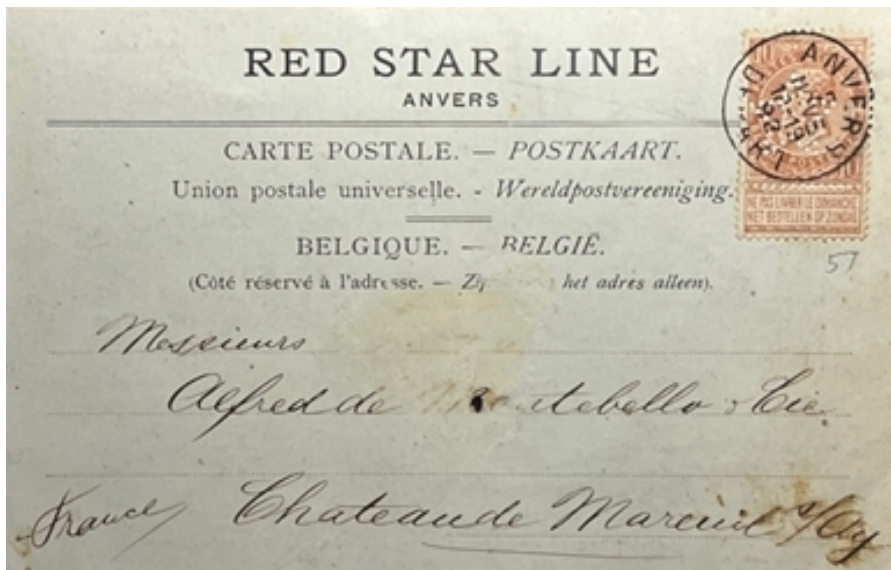 RED STAR LINE
ANVERS
CARTE POSTALE. — POSTKAART.
Union postale universelle. - Wereldpostvereeniging.
BELGIQUE. — BELGIË.
(Côté réservé à l'adresse. — het adres alleen).
ANVERS
NE PAS LIVRER LE DIMANCHE
NIET BESTELLEN OP ZONDAG
57
Messieurs
Alfred de & Cie
France Chateau de Mareuil s/Ay